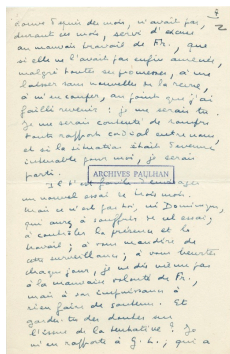 9
2
, n'avait pas,
durant ces mois, servi d'excuse
au mauvais travail de Fr., que
si elle ne l'avait pas enfin amenée,
malgré toutes ses promesses, à me
laisser sans nouvelles de la revue,
à m'en couper, au point que j'ai
failli revenir : je me serais tu.
Je me serais contenté de rompre
tout rapport cordial entre nous,
et si la situation était devenue
intenable pour moi, je serais
parti.
ARCHIVES PAULHAN
un nouvel essai de trois mois.
Mais ce n'est pas toi, ni Dominique,
qui aurez à souffrir de cet essai ;
à contrôler la présence et le
travail ; à vous maudire de
cette surveillance ; à vous heurter
chaque jour, je ne dis même pas
à la mauvaise volonté de Fr.,
mais à son impuissance à
rien faire de soutenu. Et
gardes-tu des doutes sur
l'issue de la tentative ? Je
m'en rapporte à G. L., qui a